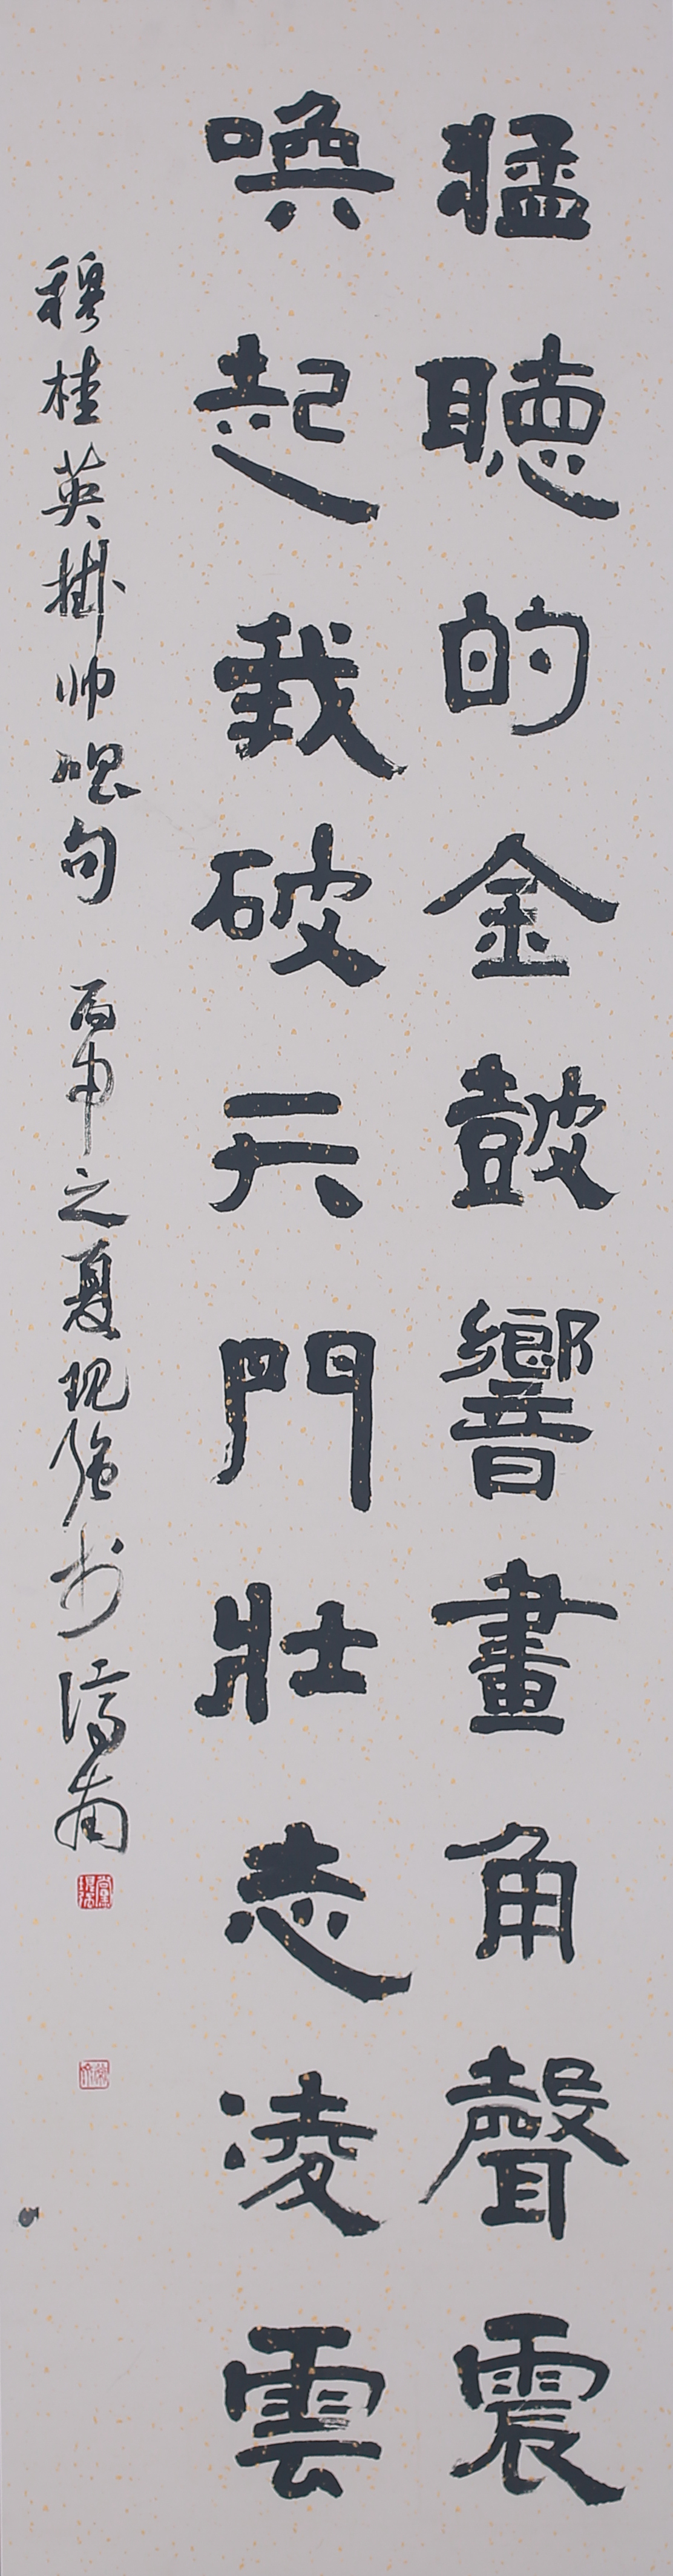 猛聽的金鼓響畫角聲震
喚起我破天門壯志凌雲
穆桂英掛帥唱句 丙申之夏現強书濟南